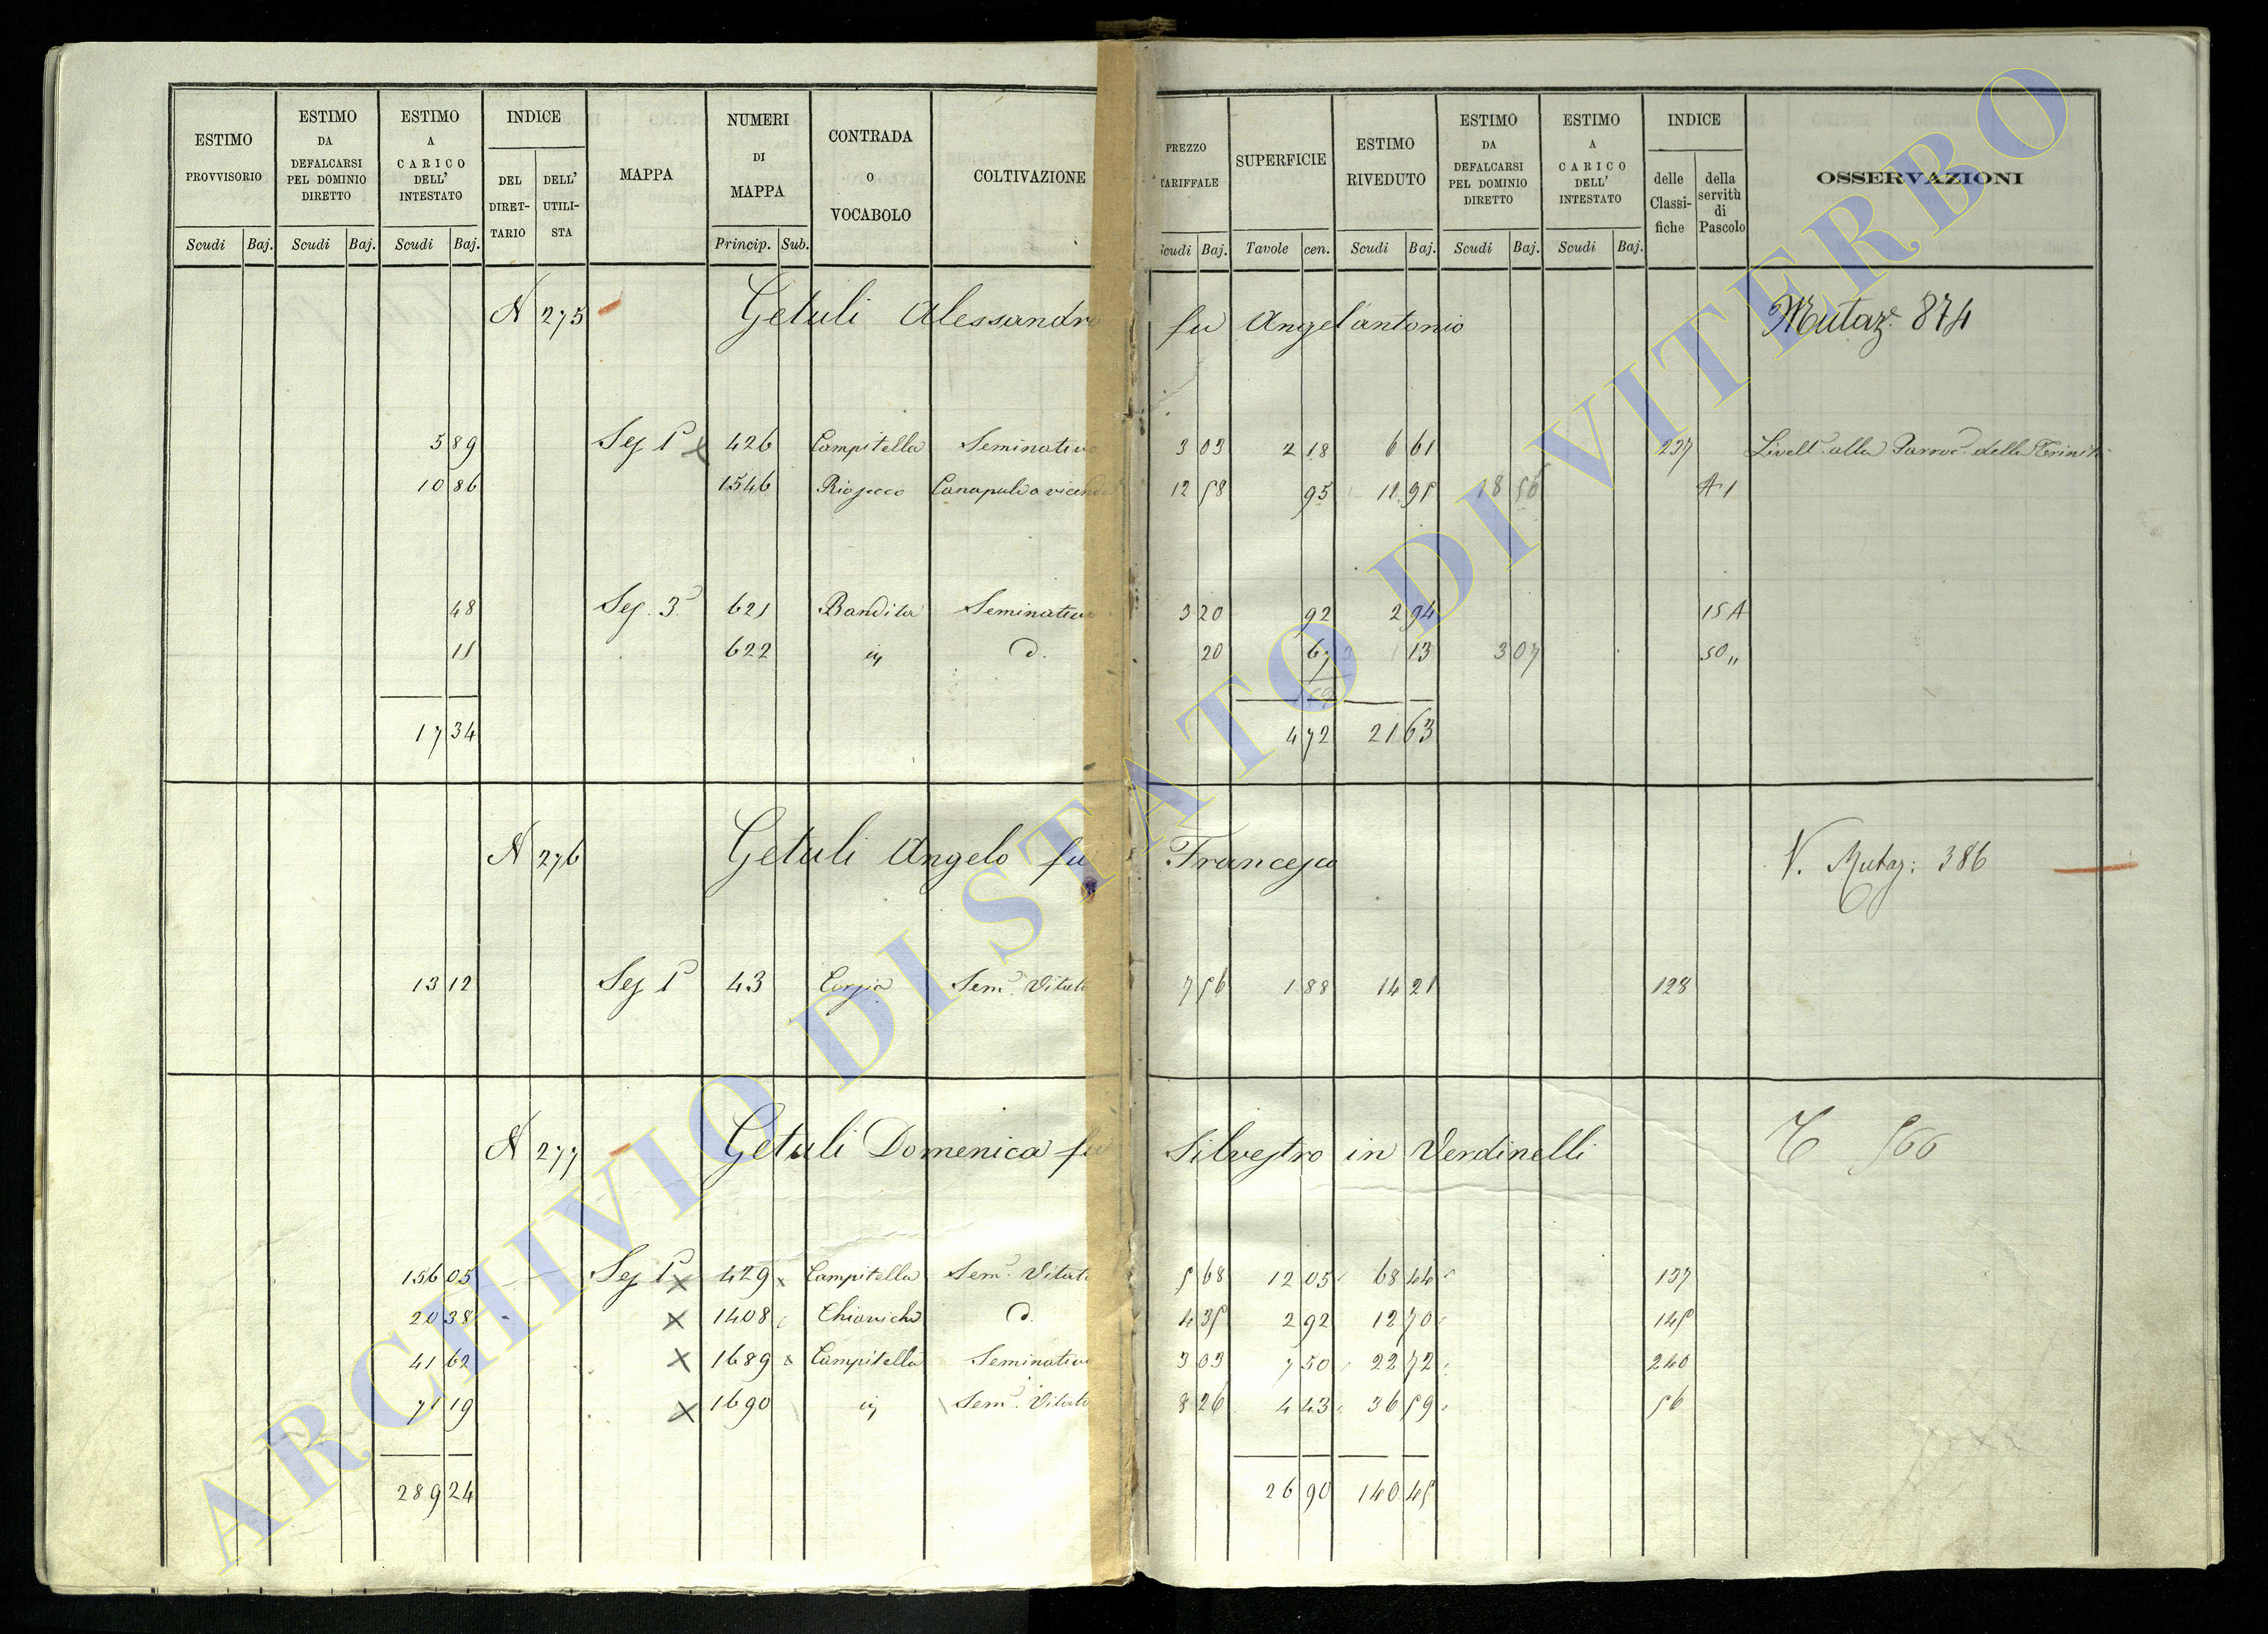 ESTIMO PROVVISORIO
ESTIMO DA DEFALCARSI PEL DOMINIO DIRETTO
ESTIMO A CARICO DELL' INTESTATO
INDICE
DEL DIRET-TARIO
DELL' UTILI-STA
MAPPA
NUMERI DI MAPPA
CONTRADA O VOCABOLO
COLTIVAZIONE
PREZZO TARIFFALE
SUPERFICIE
ESTIMO RIVEDUTO
ESTIMO DA DEFALCARSI PEL DOMINIO DIRETTO
ESTIMO A CARICO DELL' INTESTATO
INDICE
delle Classi-fiche
della servitù di Pascolo
OSSERVAZIONI
Scudi Baj. Scudi Baj. Scudi Baj. Princip. Sub. Scudi Baj. Tavole cen. Scudi Baj. Scudi Baj. Scudi Baj.
N 275 Getuli Alessandro fu Angel'antonio Mutaz.e 874
5 89 Sez 1a 426 Campitella Seminativo 3 03 2 18 6 61 237 Livell. alla Parroc. della Trinità
10 86 1546 Canapule a vicenda 12 58 95 11 95 18 56 A 1
48 Sez. 3a 621 Bandita Seminativo 3 20 92 2 94 15 A
11 622 id. 20 67 13 3 07 50 "
17 34 4 72 21 63
N 276 Getuli Angelo fu Francesco V. Mutaz: 386
13 12 Sez 1a 43 Sem. Vitato 7 56 1 88 14 21 128
N 277 Getuli Domenica fu Silvestro in Verdinelli 566
156 05 Sez 1a x 429 x Campitella Sem. Vitato 5 68 12 05 68 44 137
20 38 x 1408 d. 4 35 2 92 12 70 145
41 62 x 1689 x Campitella Seminativo 3 03 7 50 22 72 240
71 19 x 1690 Sem. Vitato 8 26 4 43 36 59 56
289 24 26 90 140 45
ARCHIVIO DI STATO DI VITERBO